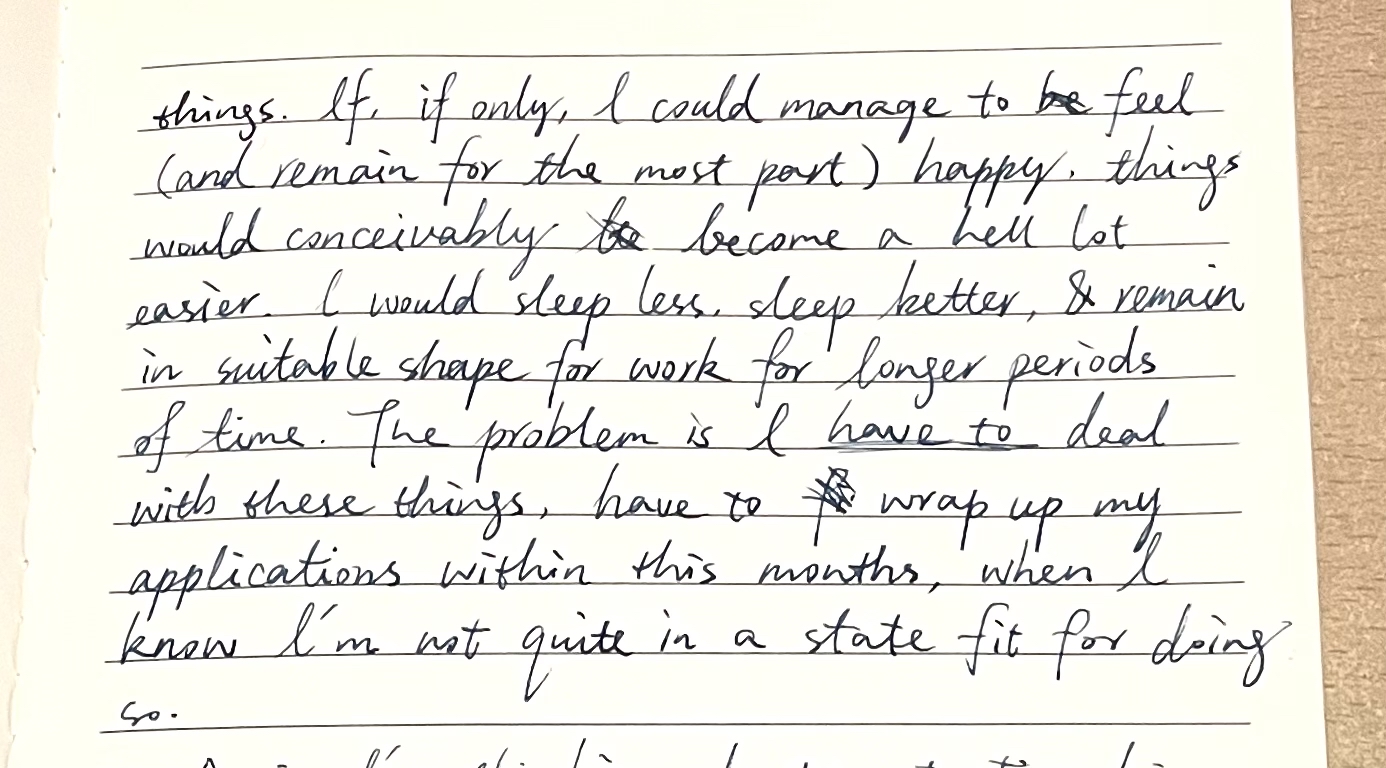 things. If, if only, I could manage to be feel
(and remain for the most part) happy, things
would conceivably be become a hell lot
easier. I would sleep less, sleep better, & remain
in suitable shape for work for longer periods
of time. The problem is I have to deal
with these things, have to wrap up my
applications within this months, when I
know I'm not quite in a state fit for doing
so.